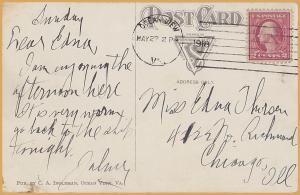 Sunday
POST CARD
Dear Edna,
OCEAN VIEW
MAY 27 2 P
VA.
1918
I am enjoying the
afternoon here
It is very warm
go back to the ship
tonight.
ADDRESS ONLY.
Miss Edna Thorsen
4122 N. Richmond
Chicago,
Ill
PUB. BY C. A. INGLEMAN, OCEAN VIEW, VA.